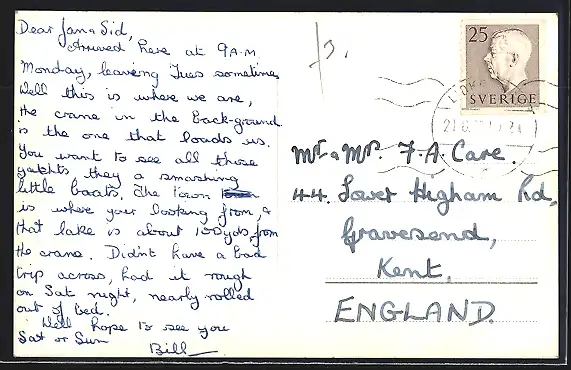 Dear Jan & Sid,
Arrived here at 9 A.M.
Monday, leaving Tues sometime
Well this is where we are,
the crane in the back-ground
is the one that loads us.
You want to see all those
yatchts they a smashing
little boats. The town
is where your looking from, &
that lake is about 100yds from
the crane. Didn't have a bad
trip across, had it rough
on Sat night, nearly rolled
out of bed.
Well hope to see you
Sat or Sun
Bill
25
SVERIGE
Mr & Mrs. F. A. Care.
44. Lower Higham Rd,
Gravesend,
Kent,
ENGLAND.